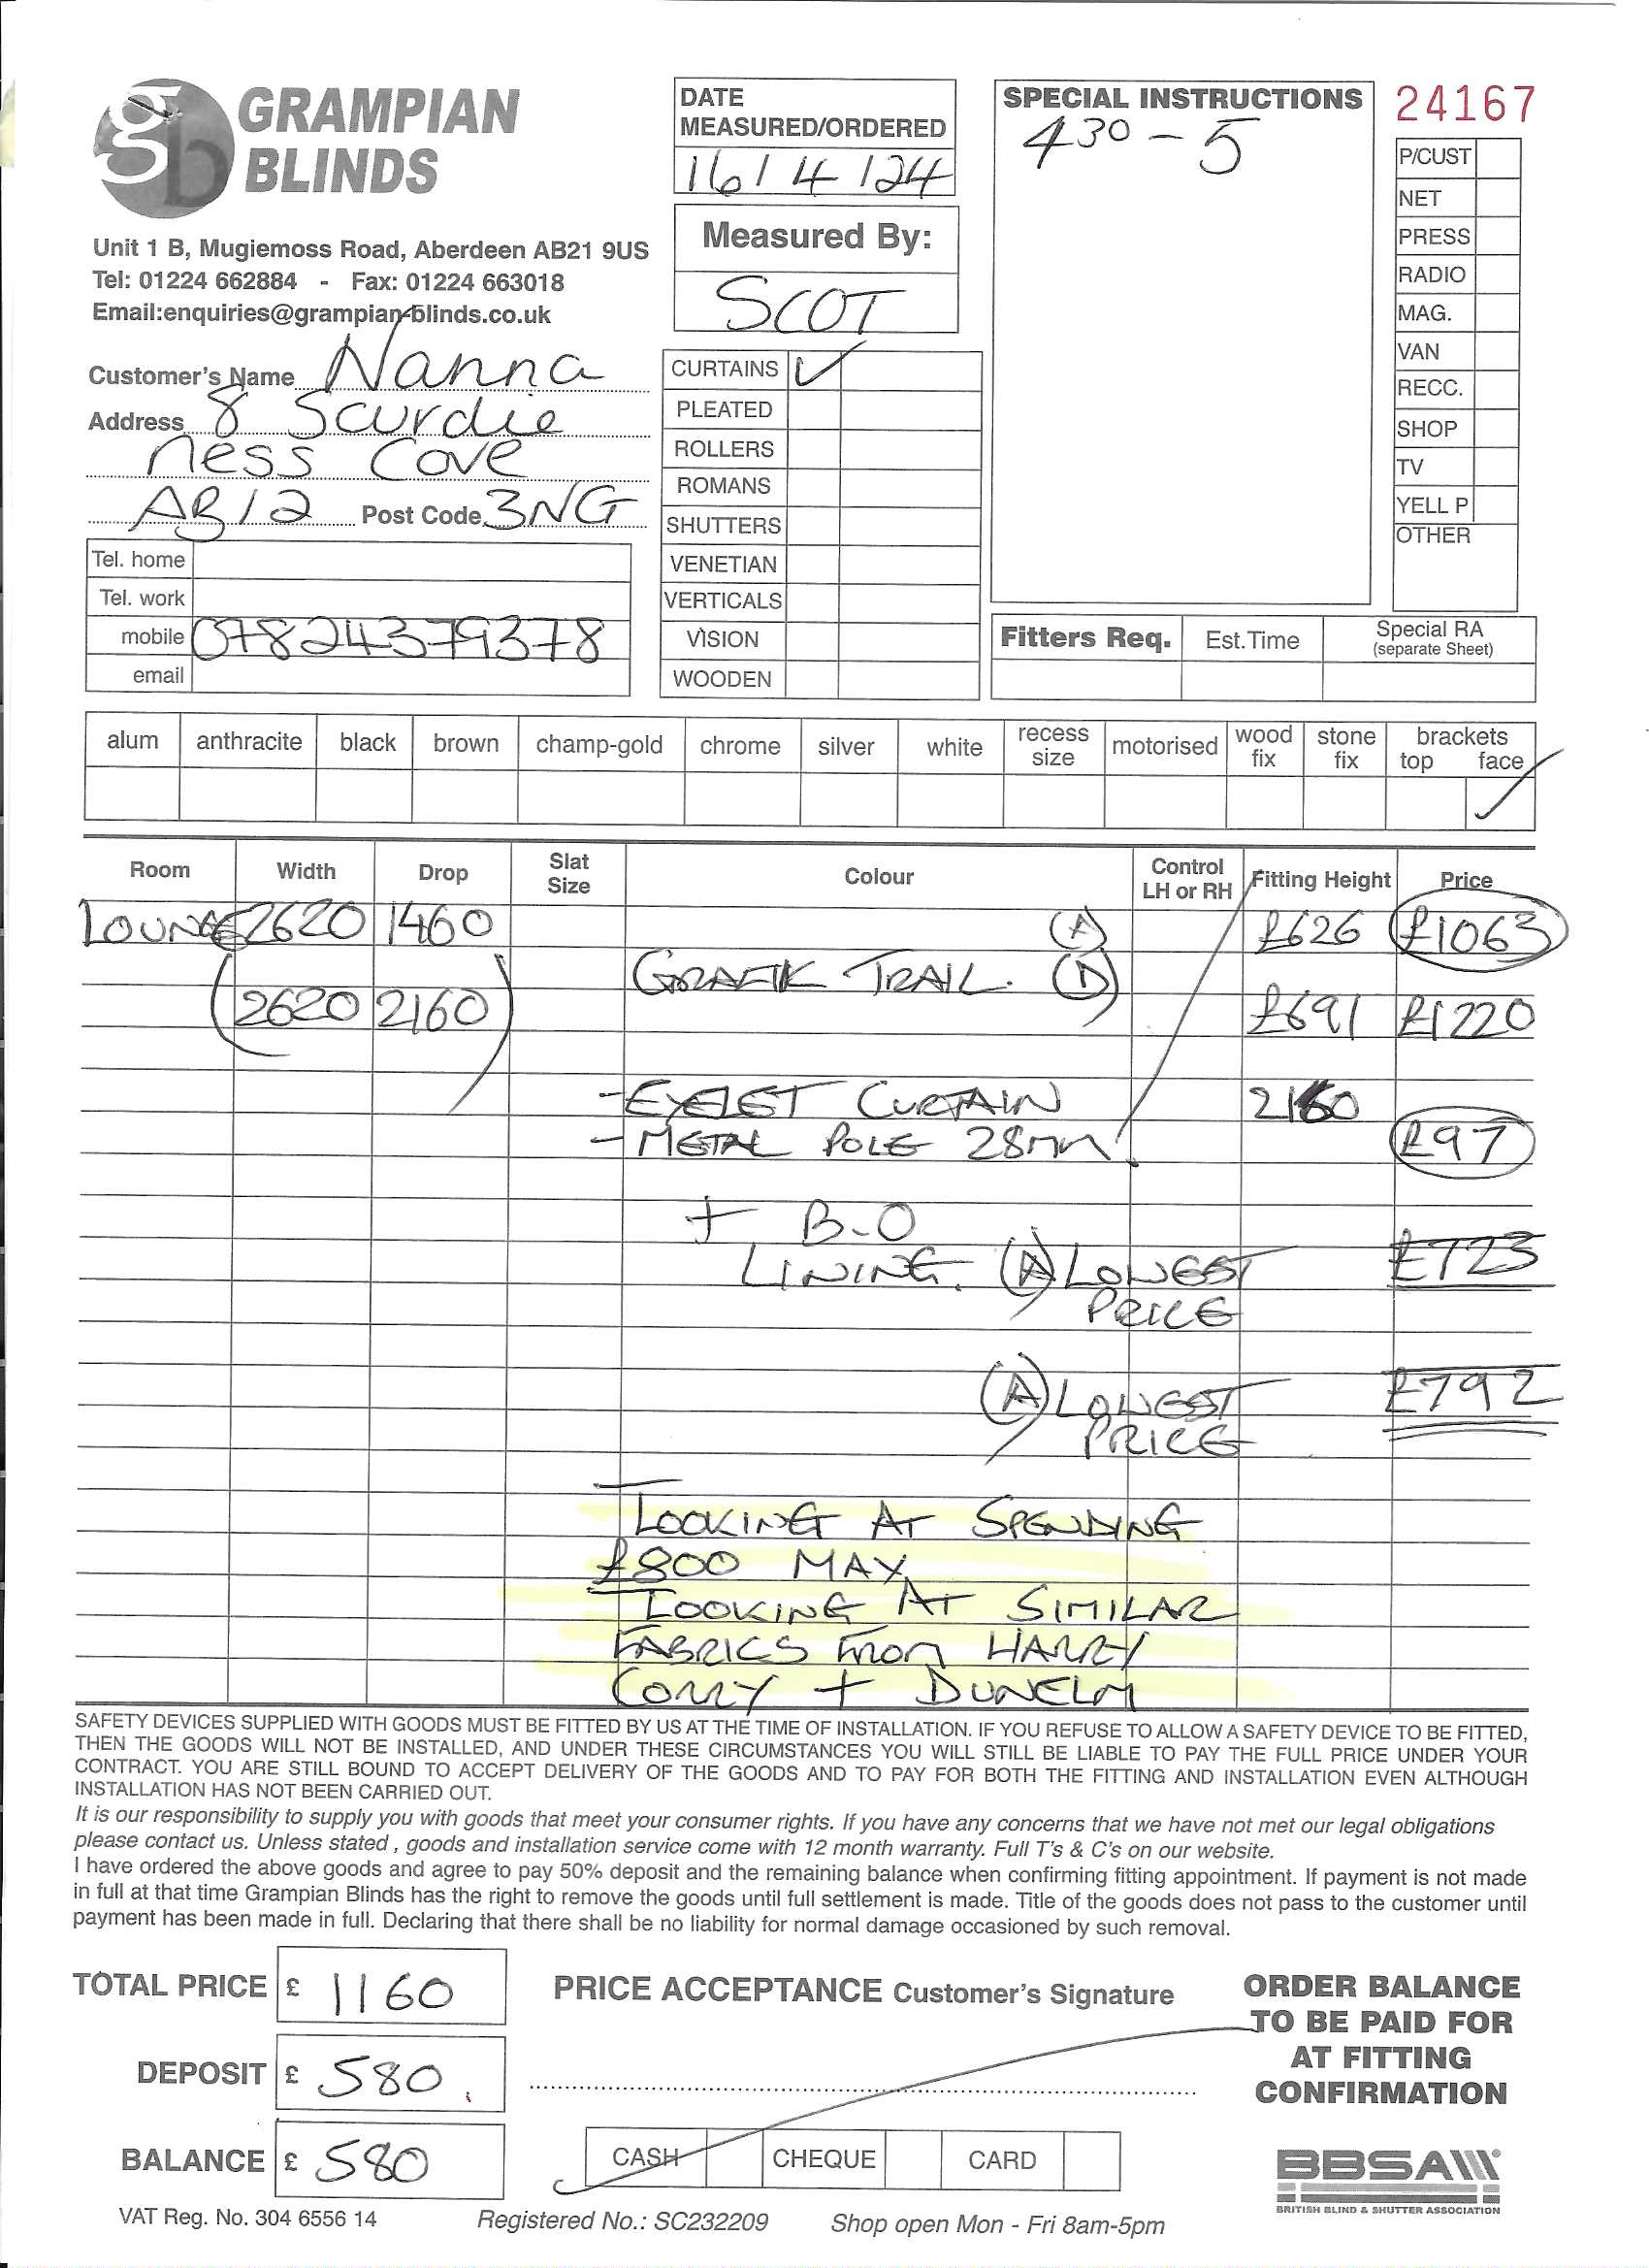 GRAMPIAN
BLINDS
Unit 1 B, Mugiemoss Road, Aberdeen AB21 9US
Tel: 01224 662884 - Fax: 01224 663018
Email:enquiries@grampian-blinds.co.uk
Customer's Name Nanna
Address 8 Scurdie
Ness Cove
AB12 Post Code 3NG
Tel. home
Tel. work
mobile 07824379378
email
DATE
MEASURED/ORDERED
16/4/24
Measured By:
SCOT
CURTAINS ✓
PLEATED
ROLLERS
ROMANS
SHUTTERS
VENETIAN
VERTICALS
VISION
WOODEN
SPECIAL INSTRUCTIONS
430 - 5
24167
P/CUST
NET
PRESS
RADIO
MAG.
VAN
RECC.
SHOP
TV
YELL P
OTHER
Fitters Req. Est.Time Special RA
(separate Sheet)
alum anthracite black brown champ-gold chrome silver white recess size motorised wood fix stone fix brackets top face ✓
Room Width Drop Slat Size Colour Control LH or RH Fitting Height Price
LOUNGE 2620 1460 (A) £626 £1063
GRAFIK TRAIL. (D)
(2620 2160) £691 £1220
- EYELET CURTAIN 2160
- METAL POLE 28mm £97
+ B-O
LINING. (A) LOWEST £723
PRICE
(A) LOWEST £792
PRICE
LOOKING AT SPENDING
£800 MAX
LOOKING AT SIMILAR
FABRICS FROM HARRY
CORRY + DUNELM
SAFETY DEVICES SUPPLIED WITH GOODS MUST BE FITTED BY US AT THE TIME OF INSTALLATION. IF YOU REFUSE TO ALLOW A SAFETY DEVICE TO BE FITTED,
THEN THE GOODS WILL NOT BE INSTALLED, AND UNDER THESE CIRCUMSTANCES YOU WILL STILL BE LIABLE TO PAY THE FULL PRICE UNDER YOUR
CONTRACT. YOU ARE STILL BOUND TO ACCEPT DELIVERY OF THE GOODS AND TO PAY FOR BOTH THE FITTING AND INSTALLATION EVEN ALTHOUGH
INSTALLATION HAS NOT BEEN CARRIED OUT.
It is our responsibility to supply you with goods that meet your consumer rights. If you have any concerns that we have not met our legal obligations
please contact us. Unless stated , goods and installation service come with 12 month warranty. Full T's & C's on our website.
I have ordered the above goods and agree to pay 50% deposit and the remaining balance when confirming fitting appointment. If payment is not made
in full at that time Grampian Blinds has the right to remove the goods until full settlement is made. Title of the goods does not pass to the customer until
payment has been made in full. Declaring that there shall be no liability for normal damage occasioned by such removal.
TOTAL PRICE £ 1160
DEPOSIT £ 580.
BALANCE £ 580
PRICE ACCEPTANCE Customer's Signature
CASH CHEQUE CARD
ORDER BALANCE
TO BE PAID FOR
AT FITTING
CONFIRMATION
BBSA
BRITISH BLIND & SHUTTER ASSOCIATION
VAT Reg. No. 304 6556 14 Registered No.: SC232209 Shop open Mon - Fri 8am-5pm